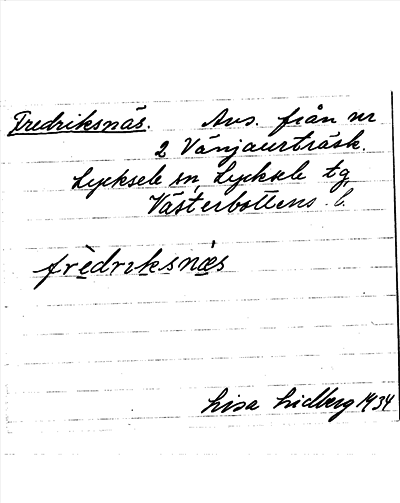 Fredriksnäs. Avs. från nr
2 Vänjaurträsk.
Lycksele sn, Lycksele tg,
Västerbottens l.
frèdriksnæs
Lisa Lidberg 1934